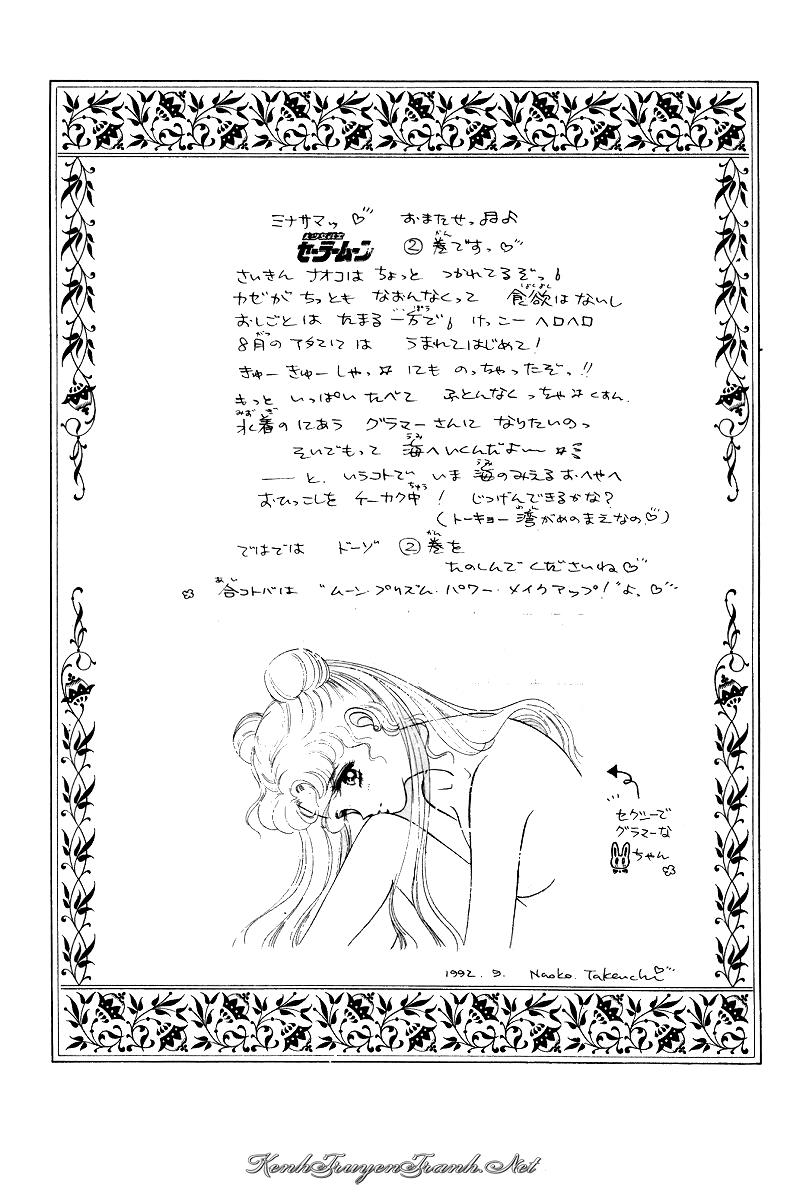 ミナサマッ♡ おまたせっ♫♪
美少女戦士
セーラームーン ②巻ですっ♡
さいきん ナオコは ちょっと つかれてるぞっ
カゼが ちっとも なおんなくって 食欲はないし
おしごとは たまる 一方で けっこー ヘロヘロ
8月の アタマには うまれてはじめて!
きゅーきゅーしゃっ にも のっちゃったぞっ!!
もっと いっぱい たべて ふとんなくっちゃ くすん.
水着のにあう グラマーさんに なりたいのっ
そいでもって 海へいくんだよー
――と、いうコトで いま 海のみえるおへやへ
おひっこしを チーカク中! じつげんできるかな?
(トーキョー湾がめのまえなの♡)
ではでは ドーゾ ②巻を
たのしんで くださいね♡
合コトバは "ムーン・プリズム・パワー・メイクアップ!"よ、♡
セクシーで
グラマーな
ちゃん
1992. 9. Naoko. Takeuchi♡
KenhTruyenTranh.Net